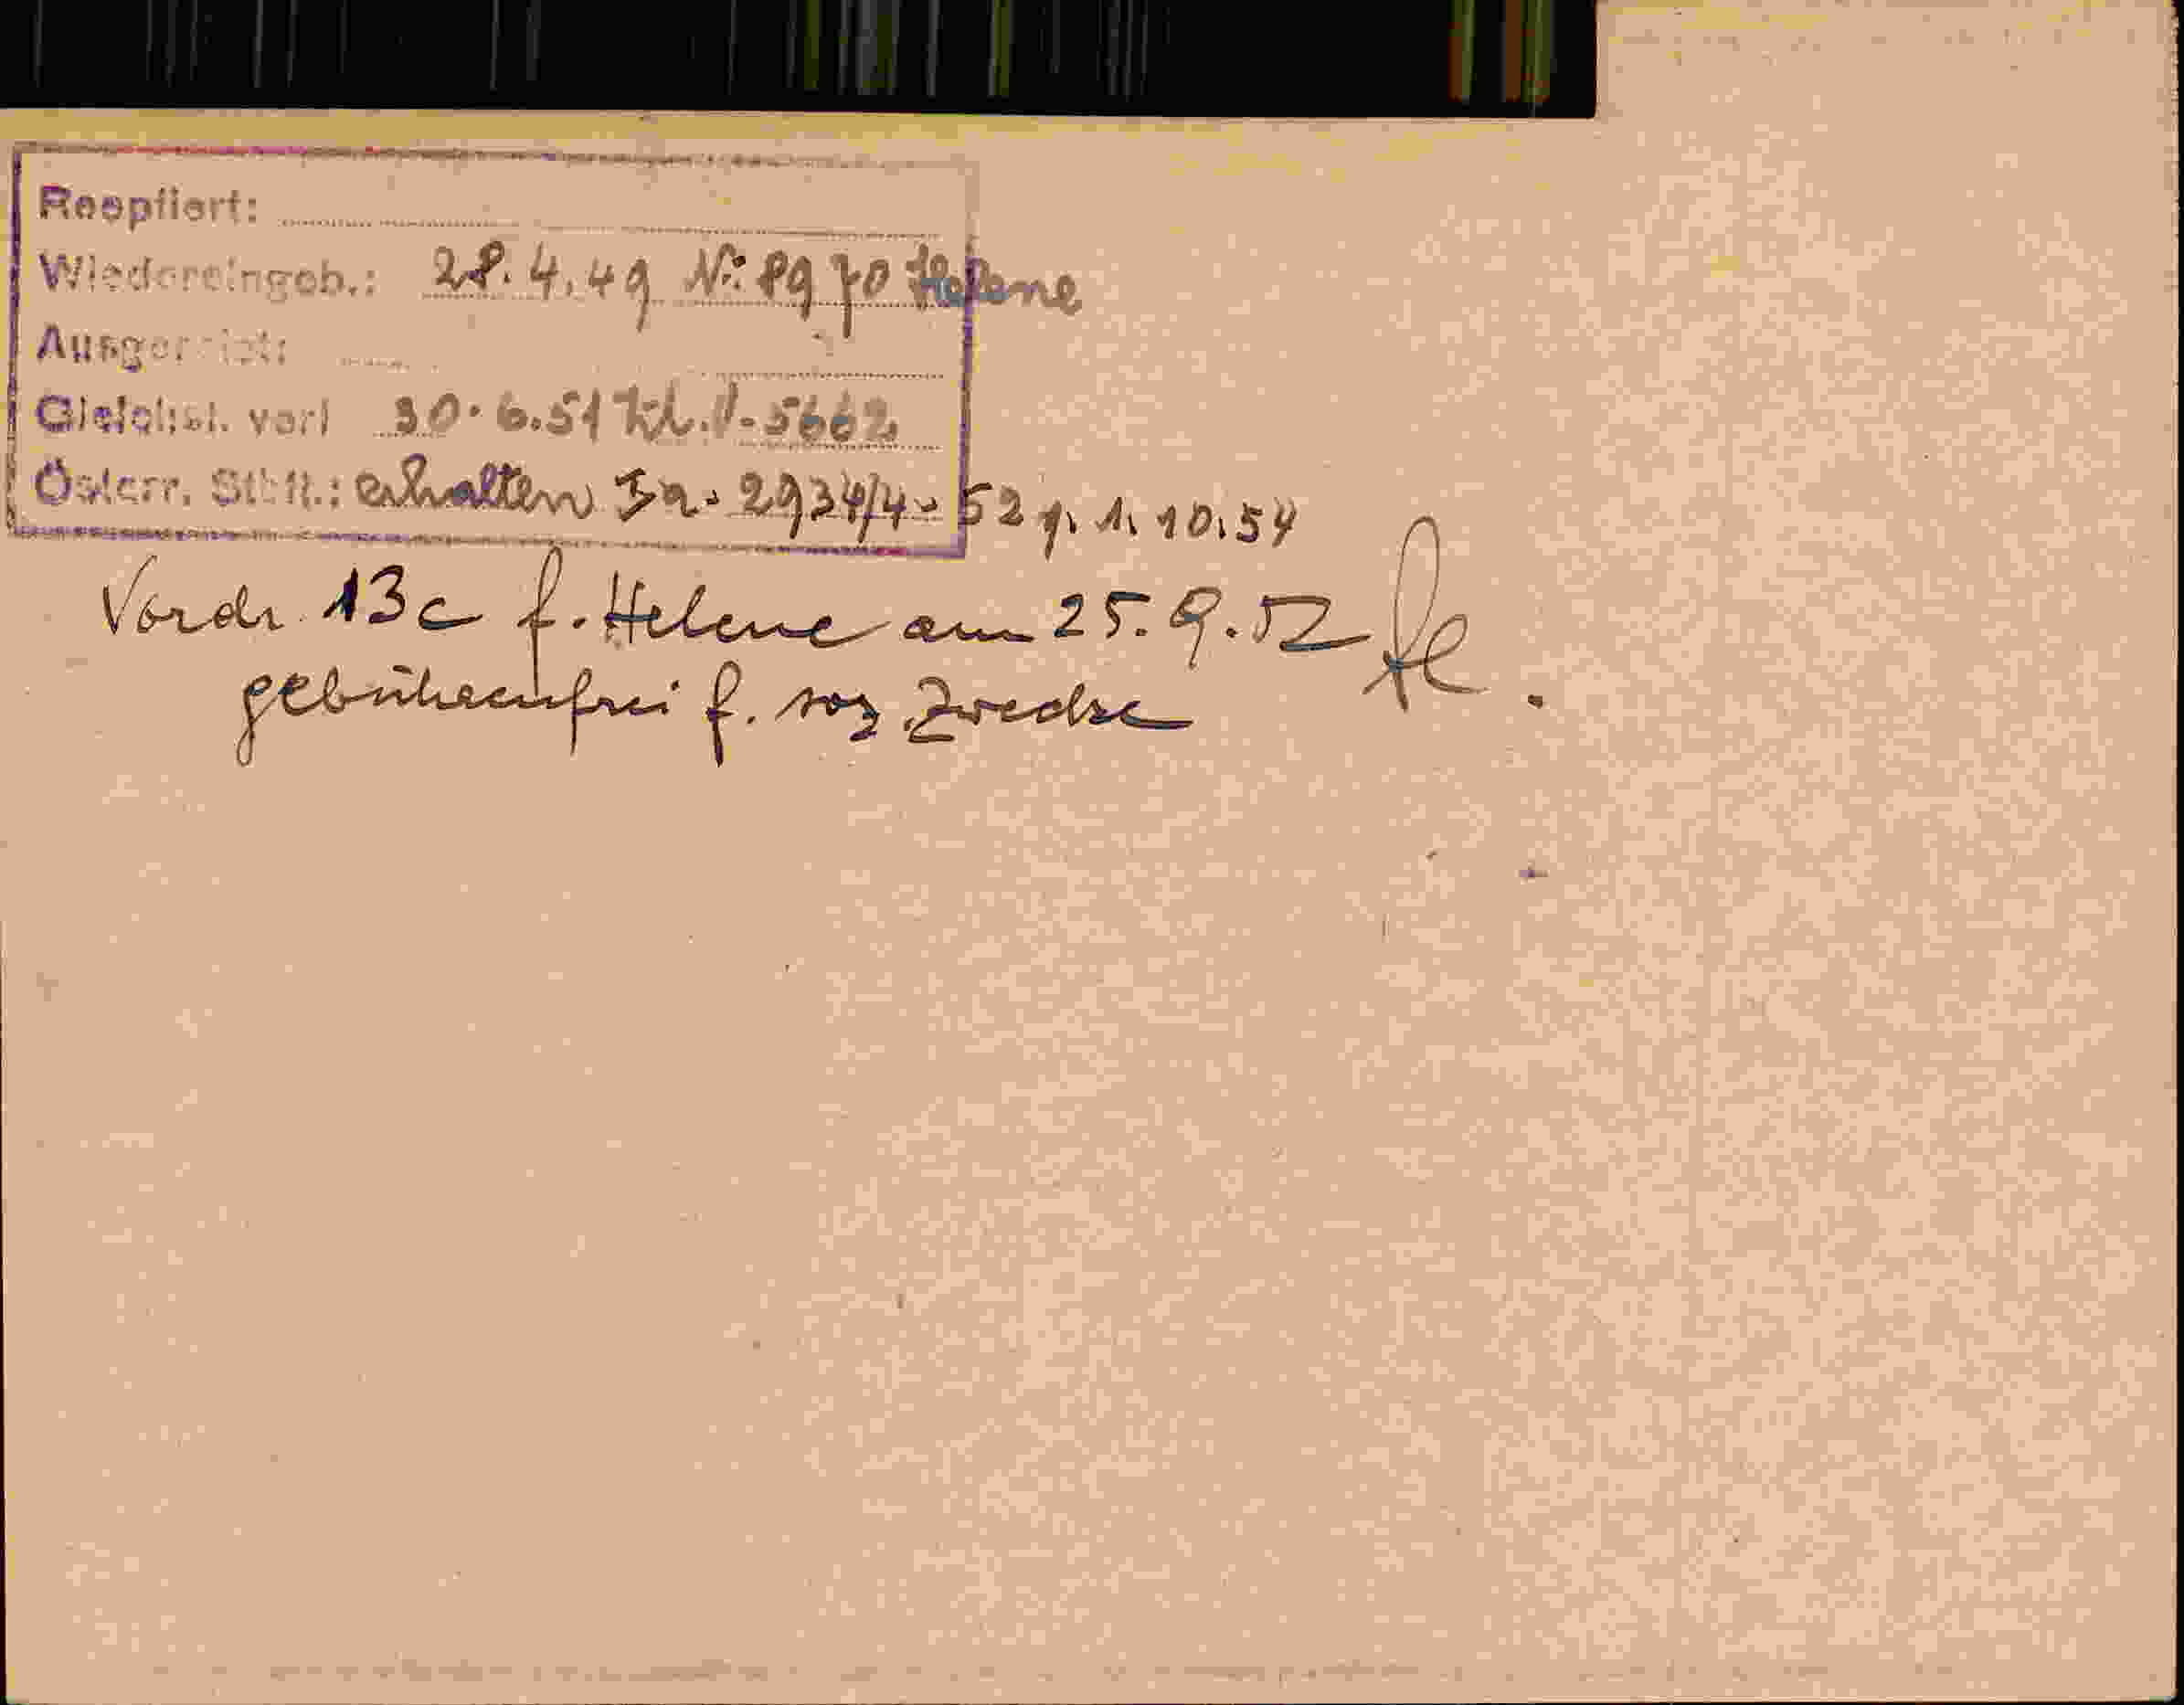 Reoptiert:
Wiedereingeb.: 28.4.49 Nr: 8970 Helene
Ausgereist:
Gleichst. verl 30.6.51 Zl. V-5662
Österr. Stbft.: erhalten Ia-2934/4-52 v. 1.10.54
Vordr. 13c f. Helene am 25.9.52
gebührenfrei f. soz. Zwecke